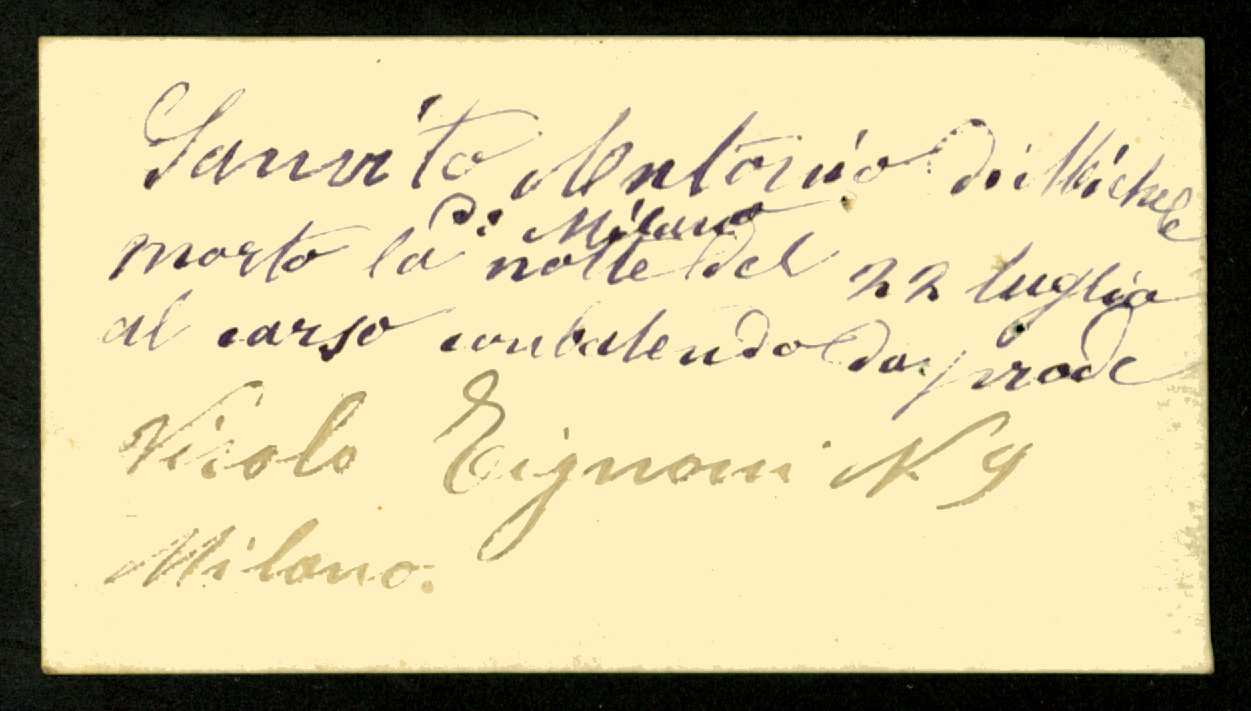 Sanvito Antonio di Michele
Di Milano
morto la notte del 22 luglio
al carso conbatendo da prode
Vicolo Tignoni N 9
Milano.